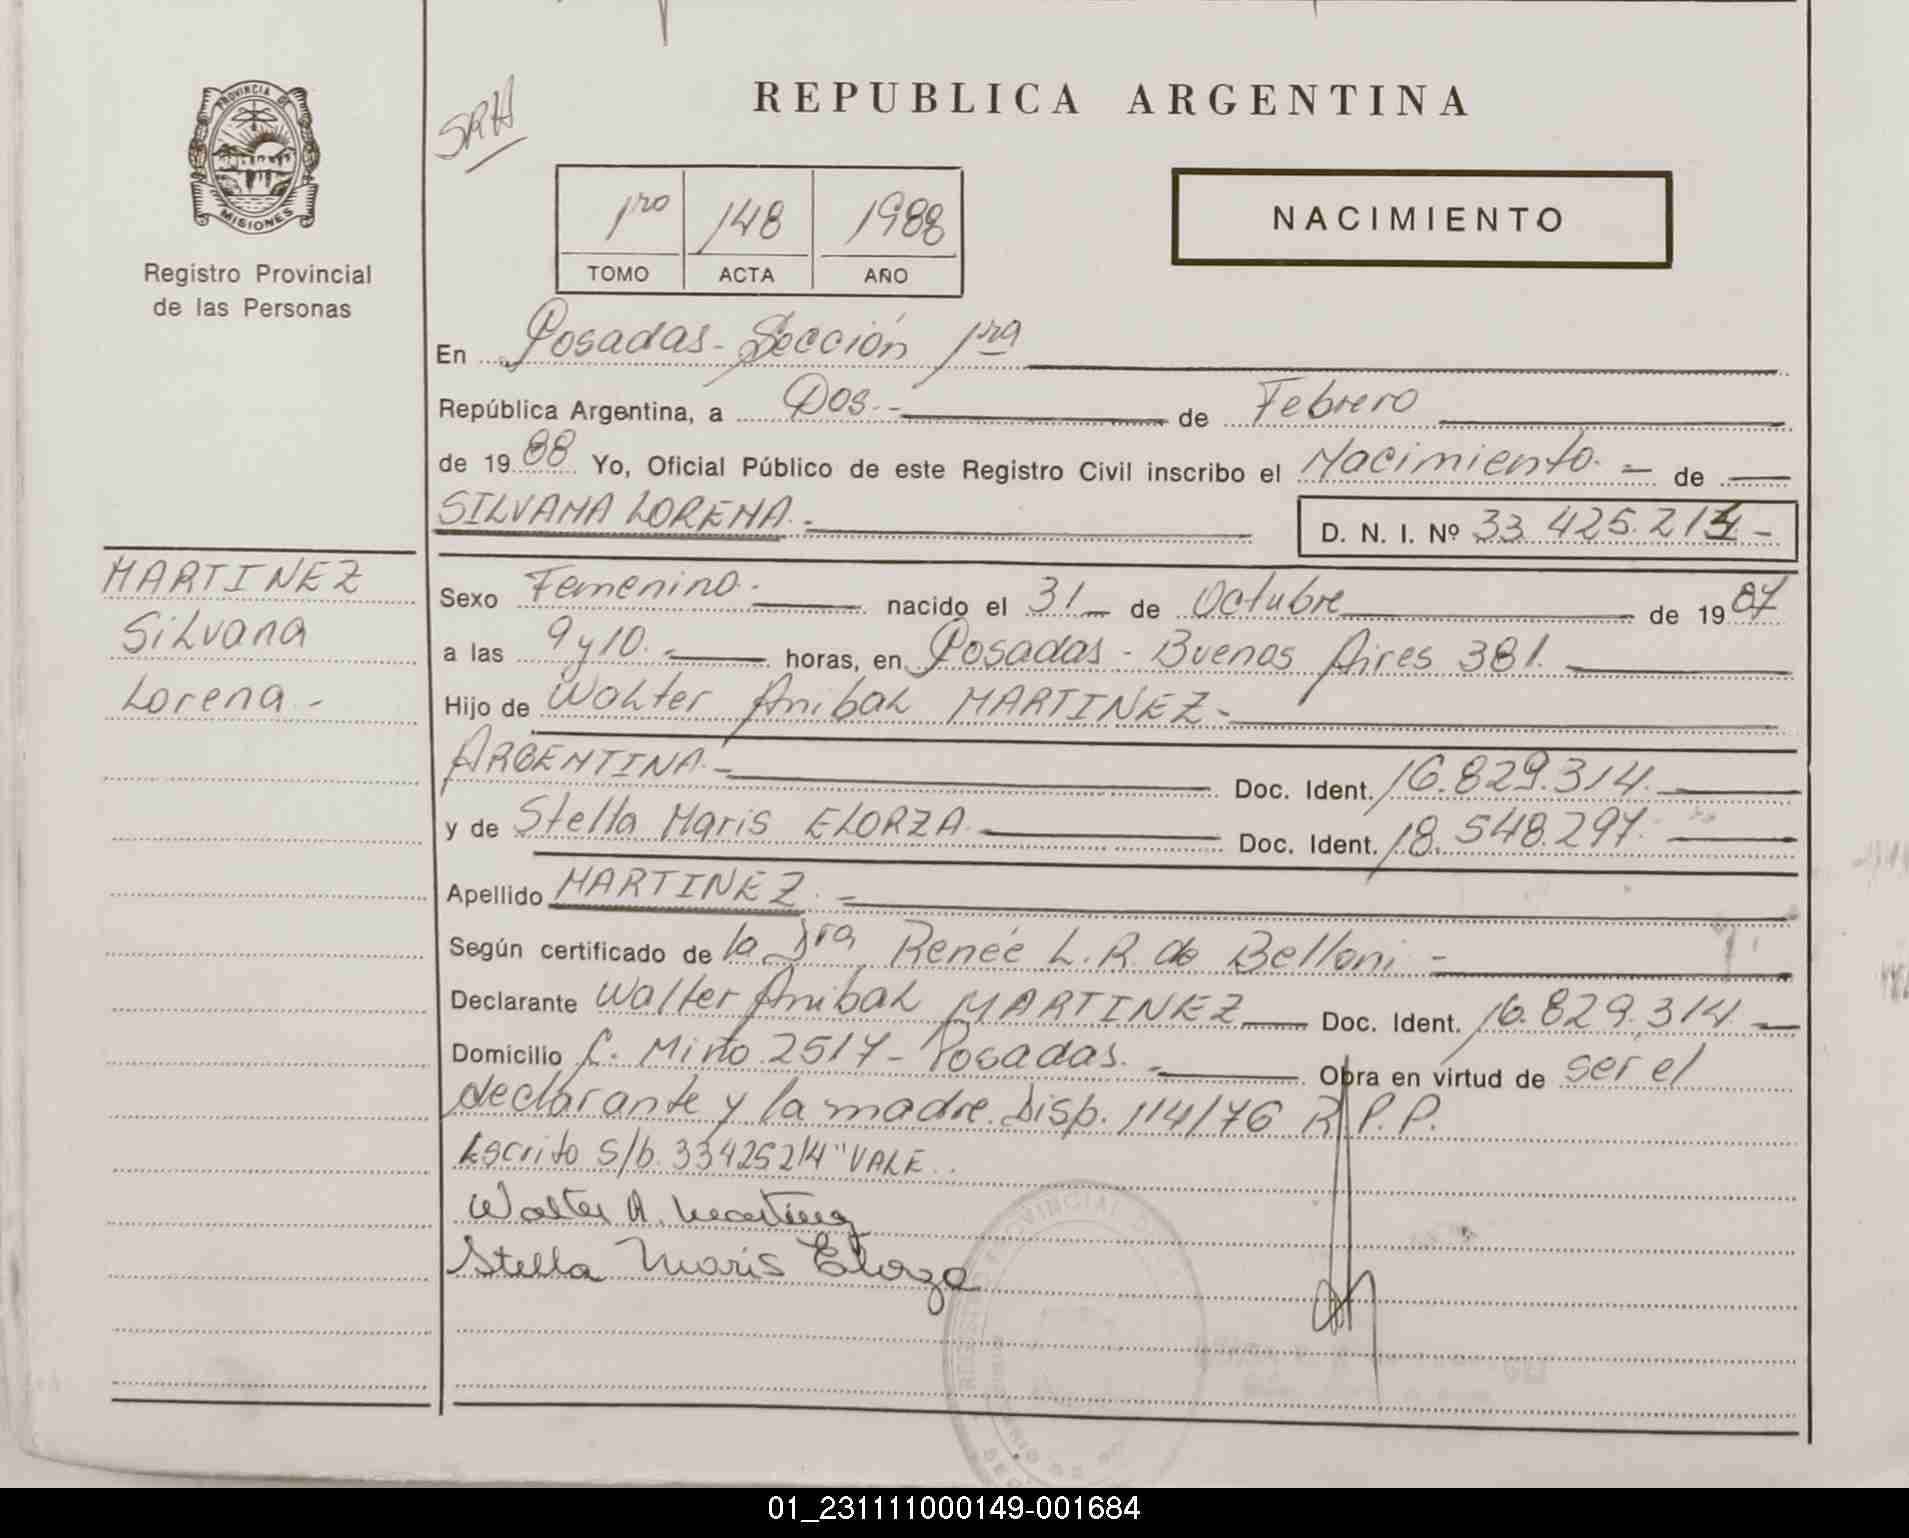 REPUBLICA ARGENTINA
PROVINCIA DE MISIONES
Registro Provincial
de las Personas
SRH
1ro 148 1988
TOMO ACTA AÑO
NACIMIENTO
En Posadas - Sección 1ra
República Argentina, a Dos.- de Febrero
de 1988 Yo, Oficial Público de este Registro Civil inscribo el Nacimiento.- de
SILVANA LORENA.- D. N. I. Nº 33.425.214-
MARTINEZ
Silvana
Lorena -
Sexo Femenino.- nacido el 31 de Octubre de 1987
a las 9 y 10.- horas, en Posadas - Buenos Aires 381.
Hijo de Walter Anibal MARTINEZ-
ARGENTINA.- Doc. Ident. 16.829.314.
y de Stella Maris ELORZA Doc. Ident. 18.548.297.
Apellido MARTINEZ.-
Según certificado de la Dra Renée L.R. de Belloni -
Declarante Walter Anibal MARTINEZ Doc. Ident. 16.829.314
Domicilio C. Miño 2517 - Posadas.- Obra en virtud de ser el
declarante y la madre. Disp. 114/76 R.P.P.
Escrito s/b. 33425214 "VALE..
Walter A. Martinez
Stella Maris Elorza
PROVINCIAL
01_231111000149-001684